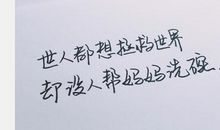 世人都想拯救世界
却没人帮妈妈洗碗